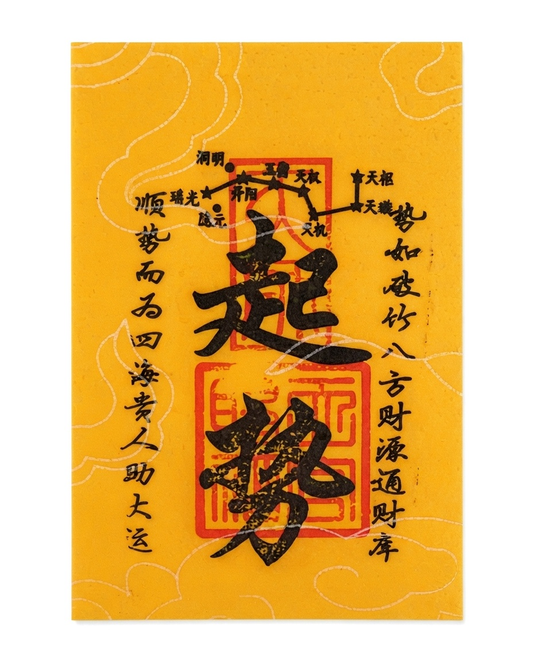 洞明
玉衡
天权
天枢
瑶光
开阳
隐元
天玑
天璇
起势
势如破竹八方财源通财库
顺势而为四海贵人助大运